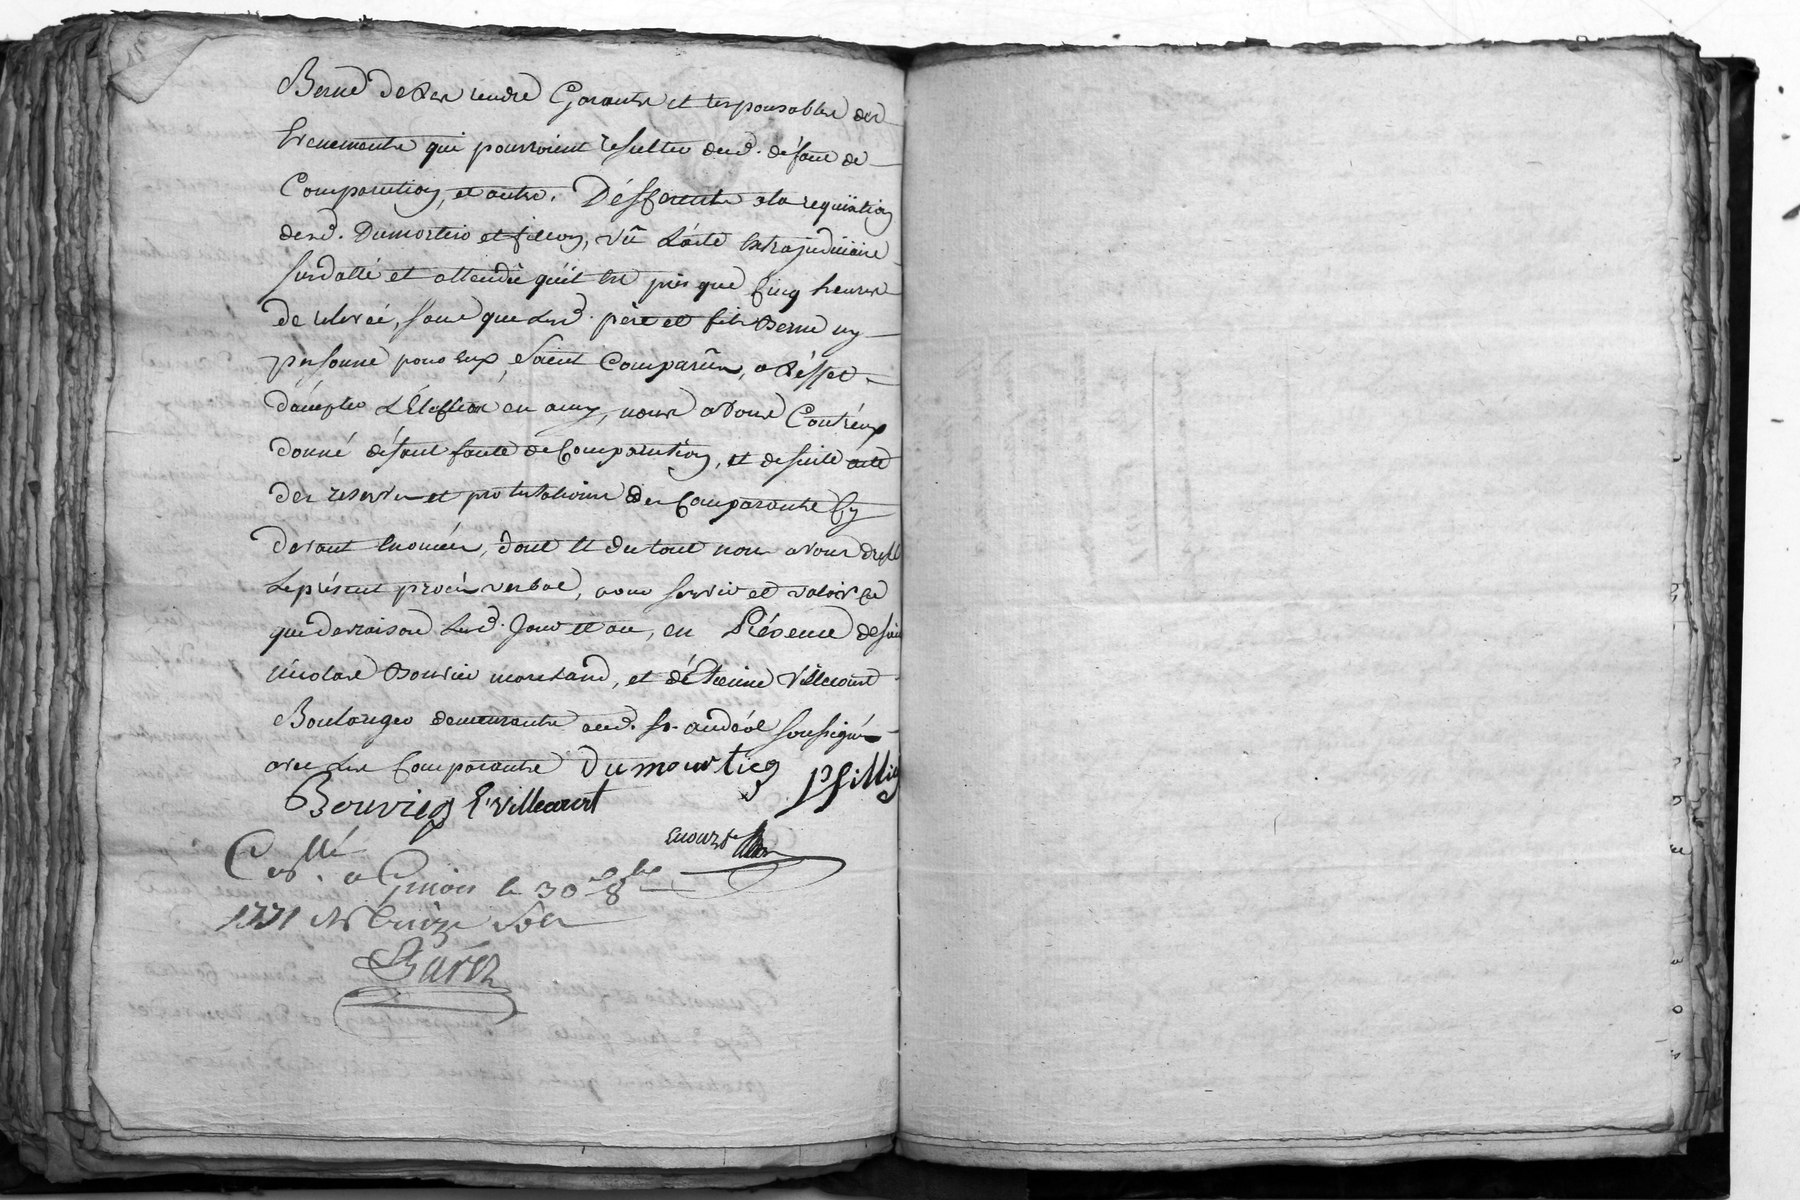 Berne de les rendre Garants et responsables des
Evenements qui pourroient resulter dud. défaut de
Comparution, et autre. Défférents a la requisition
desd. Dumortier et fillion, vû l'acte Extrajudiciaire
susdatté et attendu qu'il est près que Cinq heures
de relevée, sans que lesd. père et fils Berne ny
personne pour Eux, soient Comparûs, a l'effet
d'accepter l'Election en amy, nous avons Contr'eux
donné défaut faute de Comparution, et de suite acte
des reserves et protestations des Comparants Cy
devant només, dont et du tout nous avons dressé
le présent procès verbal, pour servir et valoir ce
que de raison lesd. Jour et an, en Présence de
nicolas Bouvier marchand, et d'Etienne Villecourt
Boulanger demeurants aud. St. andéol soussignés
avec les Comparants Dumourtier p fillion
Bouvier E Villecourt
Con.llé a Givors le 30 8bre
1771 Rs treize sols